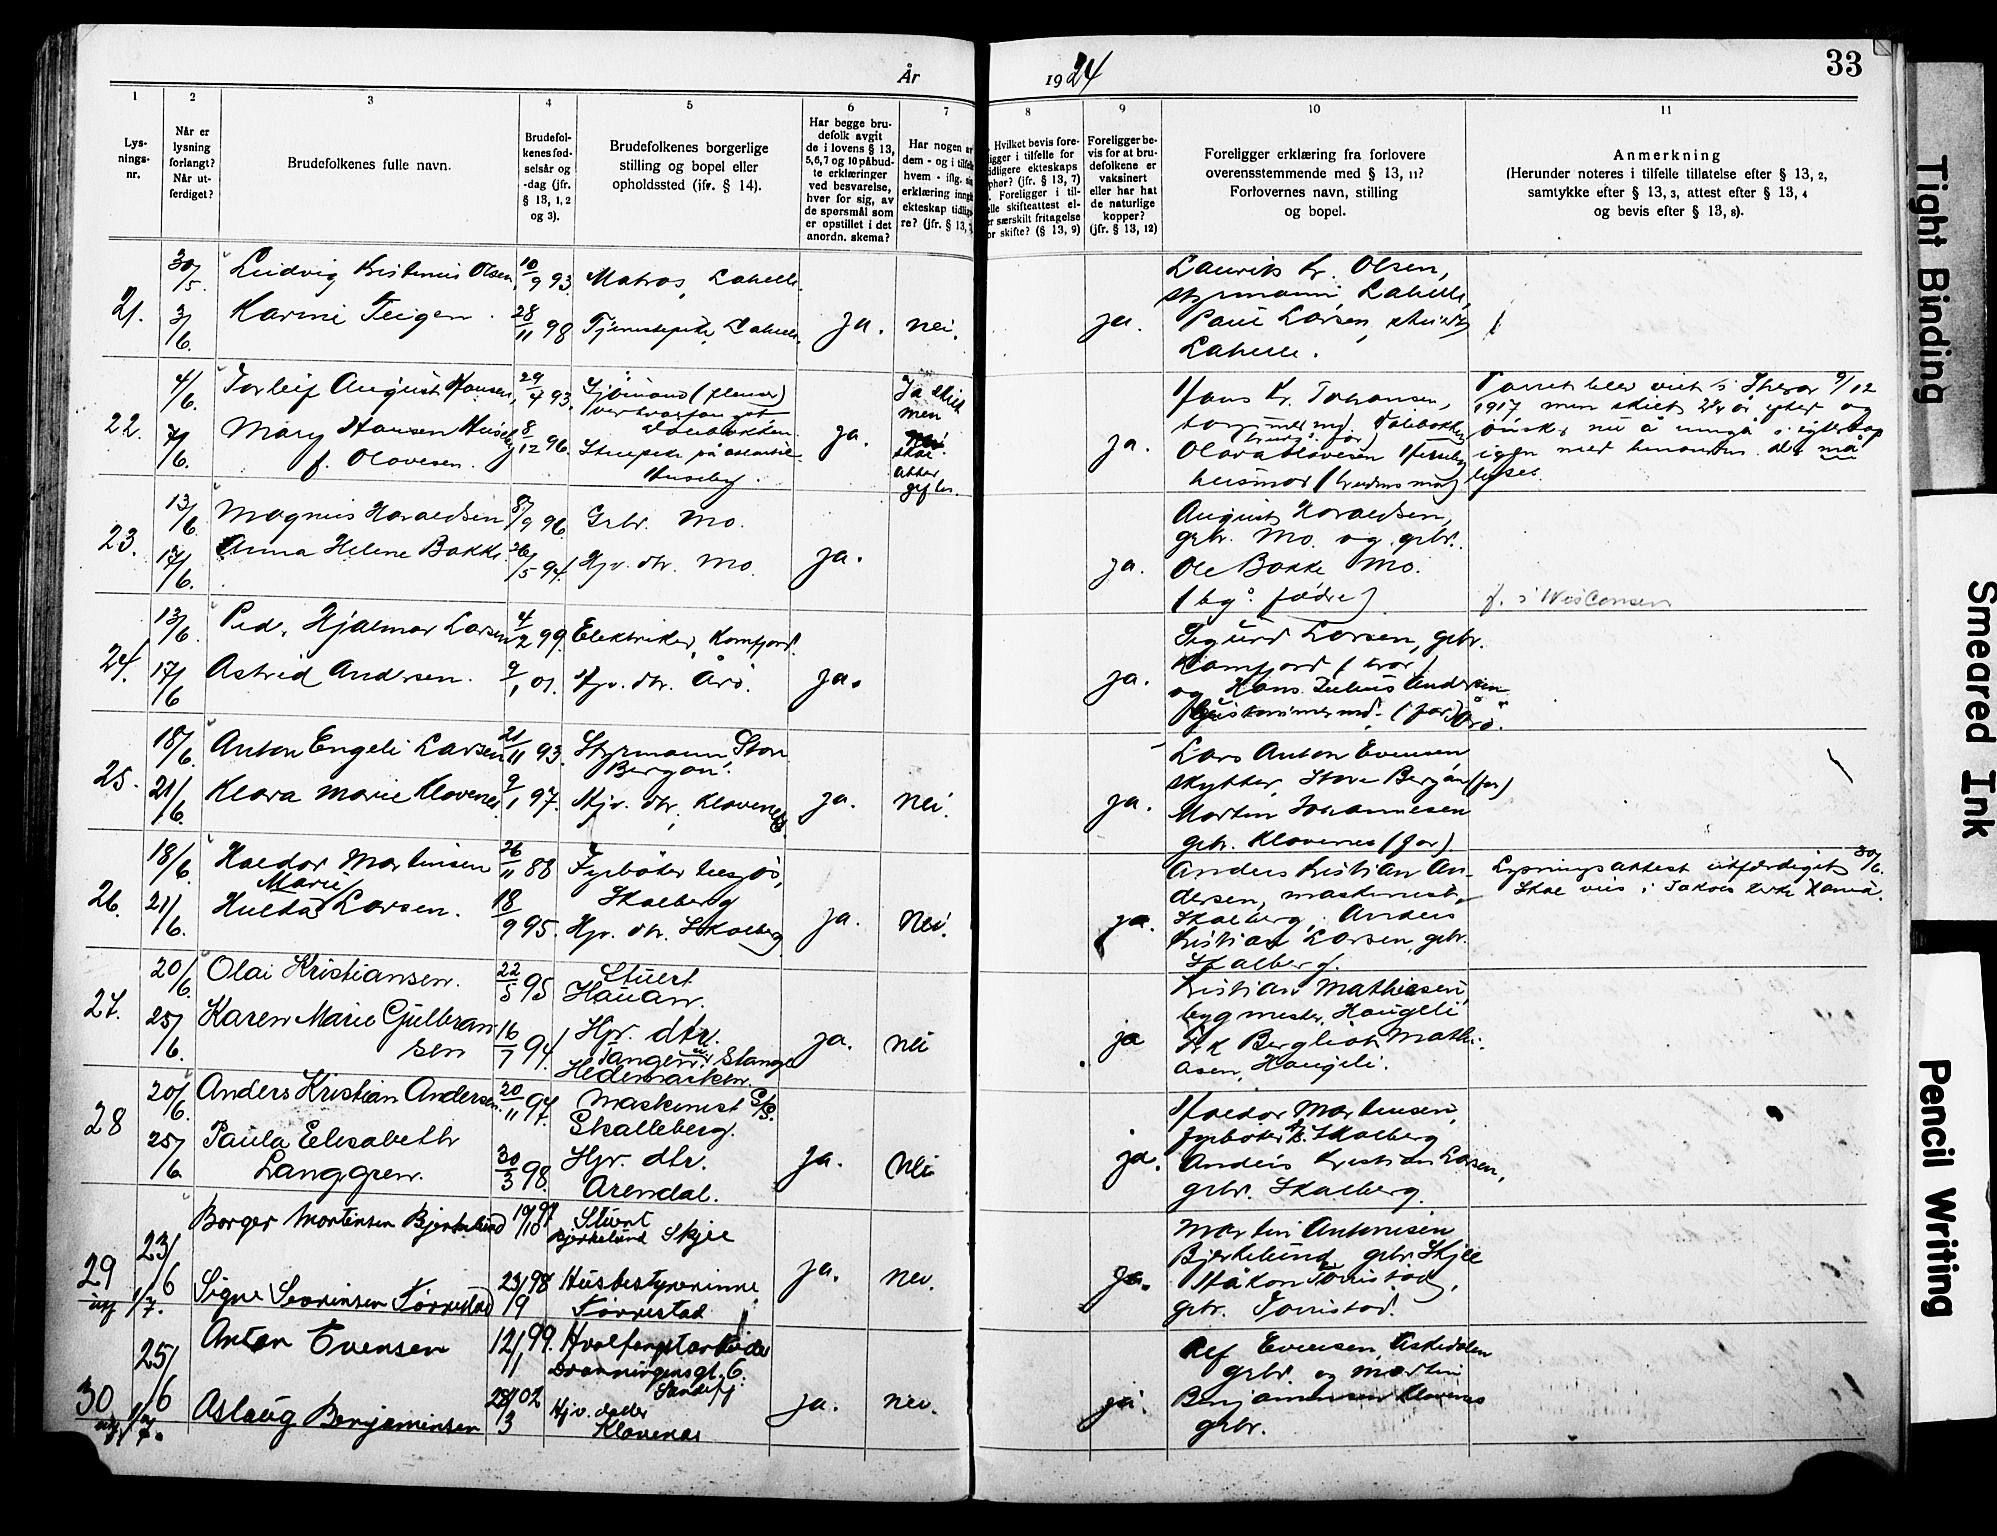 År
1924
33
1
2
3
4
5
6
7
8
9
10
11
Lys-
nings-
nr.
Når er
lysning
forlangt?
Når ut-
ferdiget?
Brudefolkenes fulle navn.
Brudefol-
kenes fød-
selsår og
-dag (jfr.
§ 13, 1, 2
og 3).
Brudefolkenes borgerlige
stilling og bopel eller
opholdssted (jfr. § 14).
Har begge bru-
defolk avgit
de i lovens § 13,
5, 6, 7 og 10 påbud-
te erklæringer
ved besvarelse,
hver for sig, av
de spørsmål som
er opstillet i det
anordn. skema?
Har nogen
dem - og i tilfelle
hvem - iflg.
erklæring inngått
ekteskap tidlige-
re? (jfr. § 13,
Hvilket bevis fore-
ligger i tilfelle for
tidligere ekteskaps
ophør? (jfr. § 13, 7)
Foreligger i til-
felle skifteattest el-
er særskilt fritagelse
for skifte? (§ 13, 9)
Foreligger be-
vis for at bru-
defolkene er
vaksinert
eller har hat
de naturlige
kopper?
(jfr. § 13, 12)
Foreligger erklæring fra forlovere
overensstemmende med § 13, 11?
Forlovernes navn, stilling
og bopel.
Anmerkning
(Herunder noteres i tilfelle tillatelse efter § 13, 2,
samtykke efter § 13, 3, attest efter § 13, 4
og bevis efter § 13, 8).
21.
30/5.
3/6.
Ludvig Kristenius Olsen,
Karine Teigen.
10/9 93.
28/11 98
Matros, Lahelle.
Tjenestepike, Lahelle.
ja.
nei.
ja.
Laurits Kr. Olsen,
styrmann, Lahelle,
Paul Larsen,
Lahelle.
22.
4/6.
7/6.
Torleif August Hansen,
Mary Hansen Huseby
f. Olavesen.
29/4 93.
8/12 96.
Sjömand
Huseby.
ja.
Ja skilt
men
skal
atter
giftes.
ja.
Hans Kr. Johansen,
Olava Olavesen Huseby
husmor (brudens mor)
Parret blev viet i 9/12
1917 men skilt 2 1/2 år efter og
önsker nu å inngå i egteskap
igjen med hinanden. de må
lyses.
23.
13/6.
17/6.
Magnus Haraldsen
Anna Helene Bakke.
8/9 96
26/5 94.
Grbr. Mo.
Hjv. dtr. Mo.
ja.
ja.
August Haraldsen,
grbr. Mo. og grbr.
Ole Bakke Mo.
(bg: fædre)
f. i Wisconsen
24.
13/6.
17/6
Peder Hjalmar Larsen
Astrid Andersen.
4/2 99.
9/1 01.
Elektriker, Kamfjord.
Hjv. dtr. Årö.
ja.
ja.
Sigurd Larsen, grbr.
Kamfjord (bror)
og Hans Julius Andersen
(far) Årö.
25.
18/6.
21/6.
Anton Engeli Larsen
Klara Marie Klavenes.
21/11 93.
9/1 97.
Styrmann, Store
Bergan.
Hjv. dtr., Klavenes.
ja.
nei.
ja.
Lars Anton Evensen
skytter, Store Bergan (far)
Martin Johannesen
grbr. Klavenes (far).
26.
18/6.
21/6.
Haldor Martinsen
Marie
Hulda Larsen.
26/11 88
18/9 95.
Fyrböter
Skalberg
Hjv. dtr. Skalberg
ja.
Nei.
ja.
Anders Kristian An-
dersen, maskinist,
Skalberg, Anders
Kristian Larsen, grbr.
Skalberg.
Lysningsattest utfærdiget 30/6.
Skal vies i Jakobs kirke
27.
20/6.
25/6.
Olai Kristiansen.
Karen Marie Gulbran
sen
22/5 95
16/7 94.
Stuert
Hauan.
Hjv. dtr.
Tangen, Stange
Hedemarken.
ja.
nei
ja
Kristian Mathiesen,
bygmester, Haugeli
Frk Bergliot Mathi-
asen, Haugeli.
28
20/6.
25/6
Anders Kristian Andersen.
Paula Elisabeth
Langgren.
20/11 97.
30/3 98.
Maskinist
Skalleberg.
Hjv. dtr.
Arendal.
ja.
nei
ja.
Haldor Martinsen,
fyrböter, Skalberg
Anders Kristian Larsen,
grbr. Skalberg.
29
23/6
1/7.
Borger Martinsen Bjerkelund
Signe Severinsen Törrestad
19/10 97
23/9 98
Stuert
Bjerkelund Skjee
Husbestyrerinne
Törrestad
ja.
nei.
ja.
Martin Antonisen
Bjerkelund grbr. Skjee
Håkon Torristad,
grbr. Torristad.
30
25/6
Anton Evensen
Aslaug Benjaminsen
12/1 99.
28/3 02
Hvalfangstarbeider
Dronningensgt. 6.
Sandefj.
Hjv. datter
Klavenes
ja.
nei.
ja.
Alf Evensen, Askedalen
grbr. og Martin
Benjaminsen Klavenes
grbr.
Tight Binding
Smeared Ink
Pencil Writing